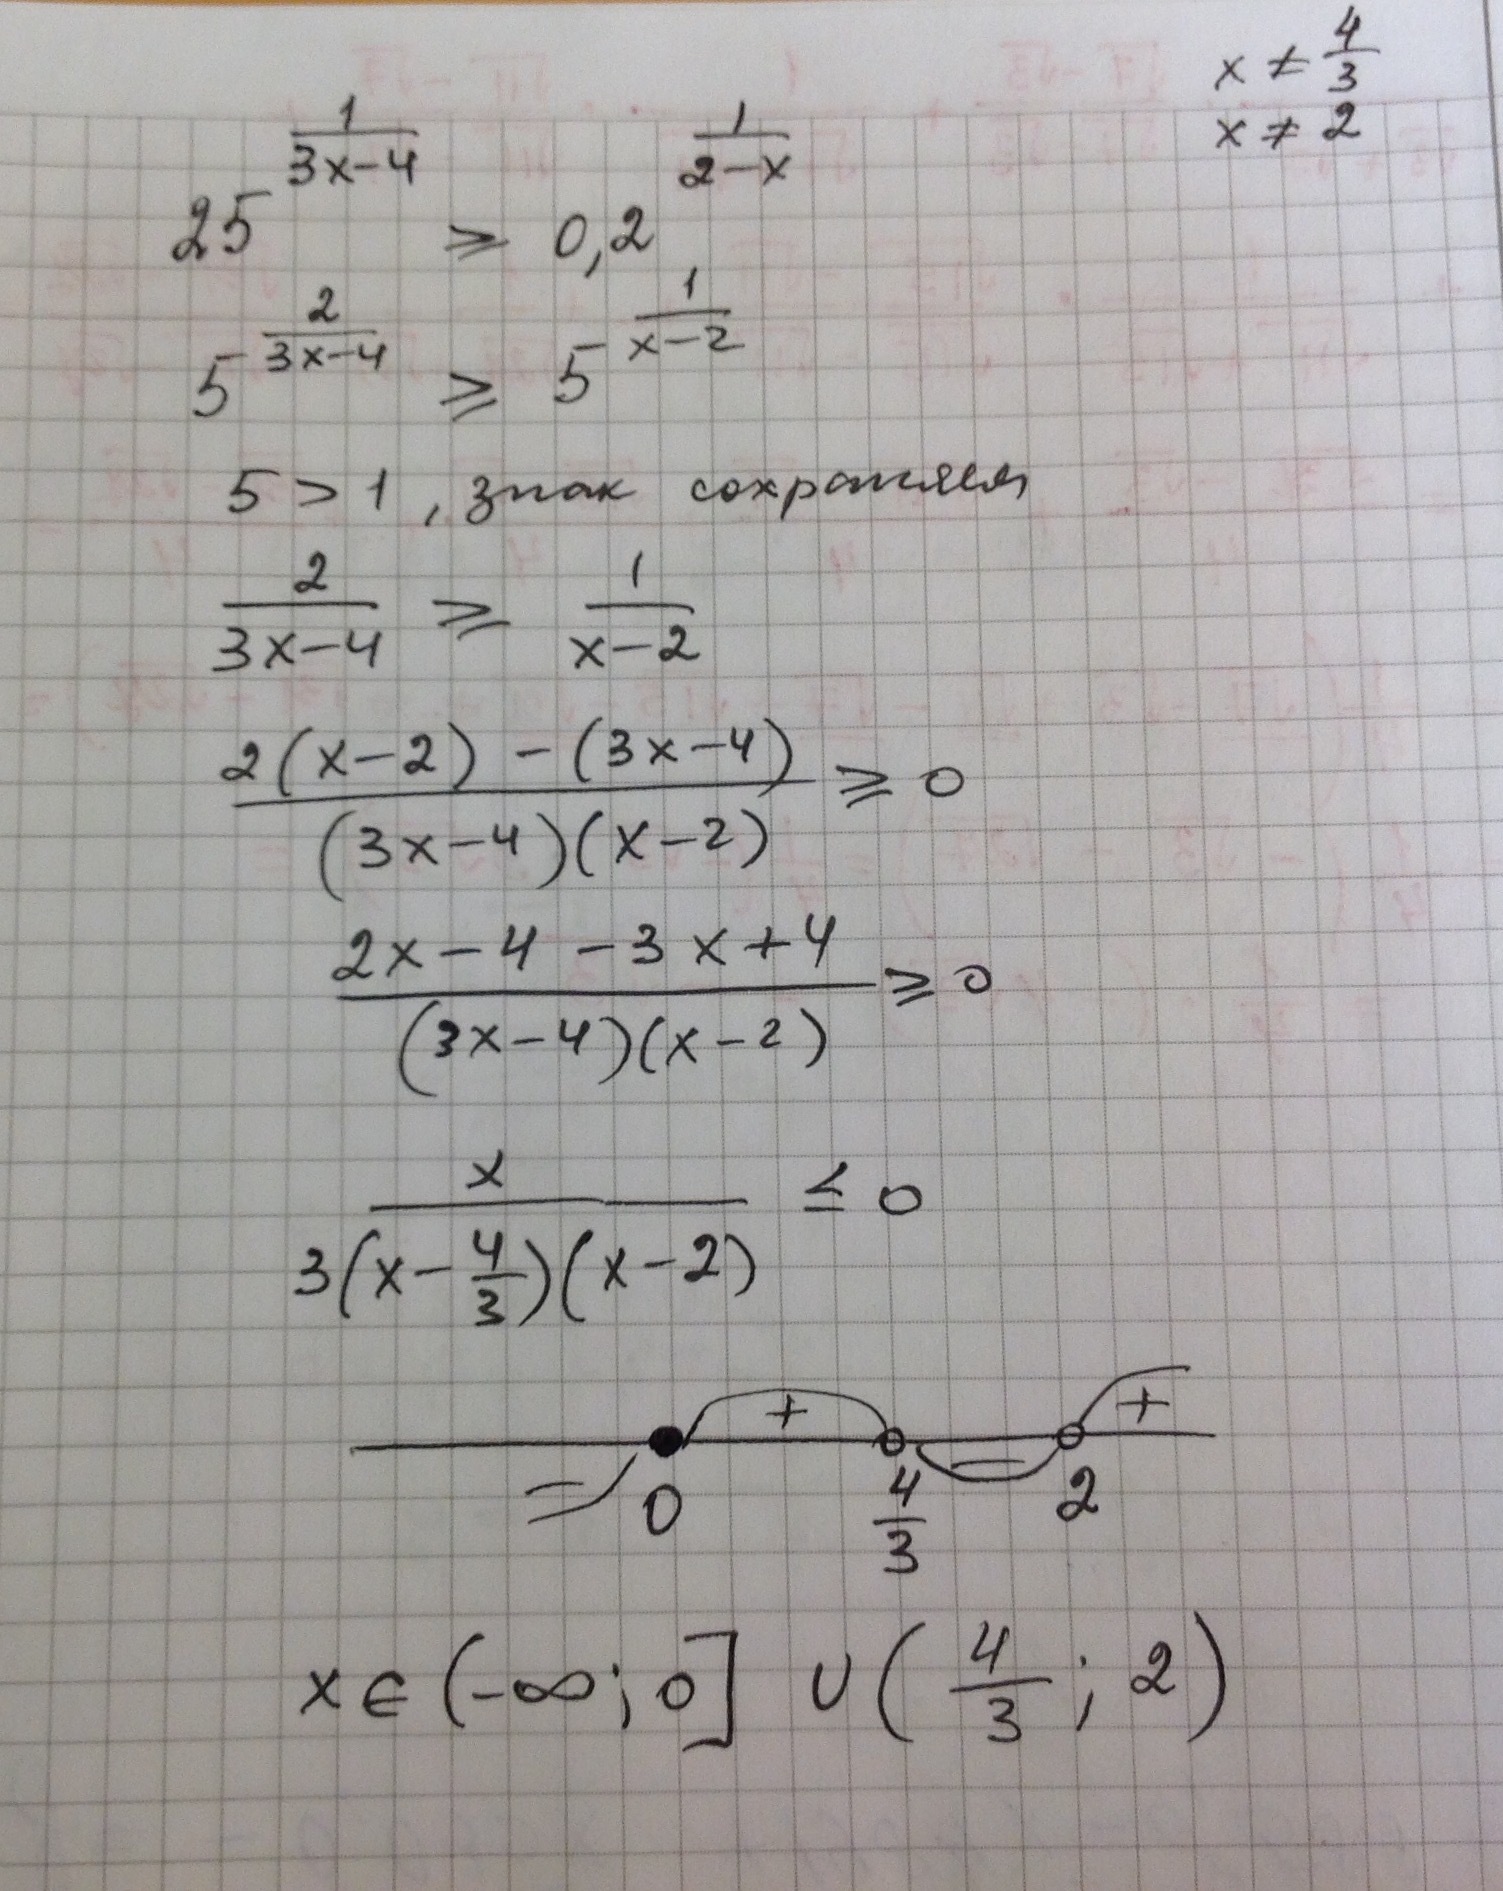 x ≠ 4/3
x ≠ 2
25^(1/(3x-4)) ⩾ 0,2^(1/(2-x))
5^(2/(3x-4)) ⩾ 5^(1/(x-2))
5 > 1, знак сохраняем
2/(3x-4) ⩾ 1/(x-2)
(2(x-2) - (3x-4))/((3x-4)(x-2)) ⩾ 0
(2x-4-3x+4)/((3x-4)(x-2)) ⩾ 0
x/(3(x-4/3)(x-2)) ≤ 0
- + - +
0 4/3 2
x ∈ (-∞; 0] ∪ (4/3; 2)